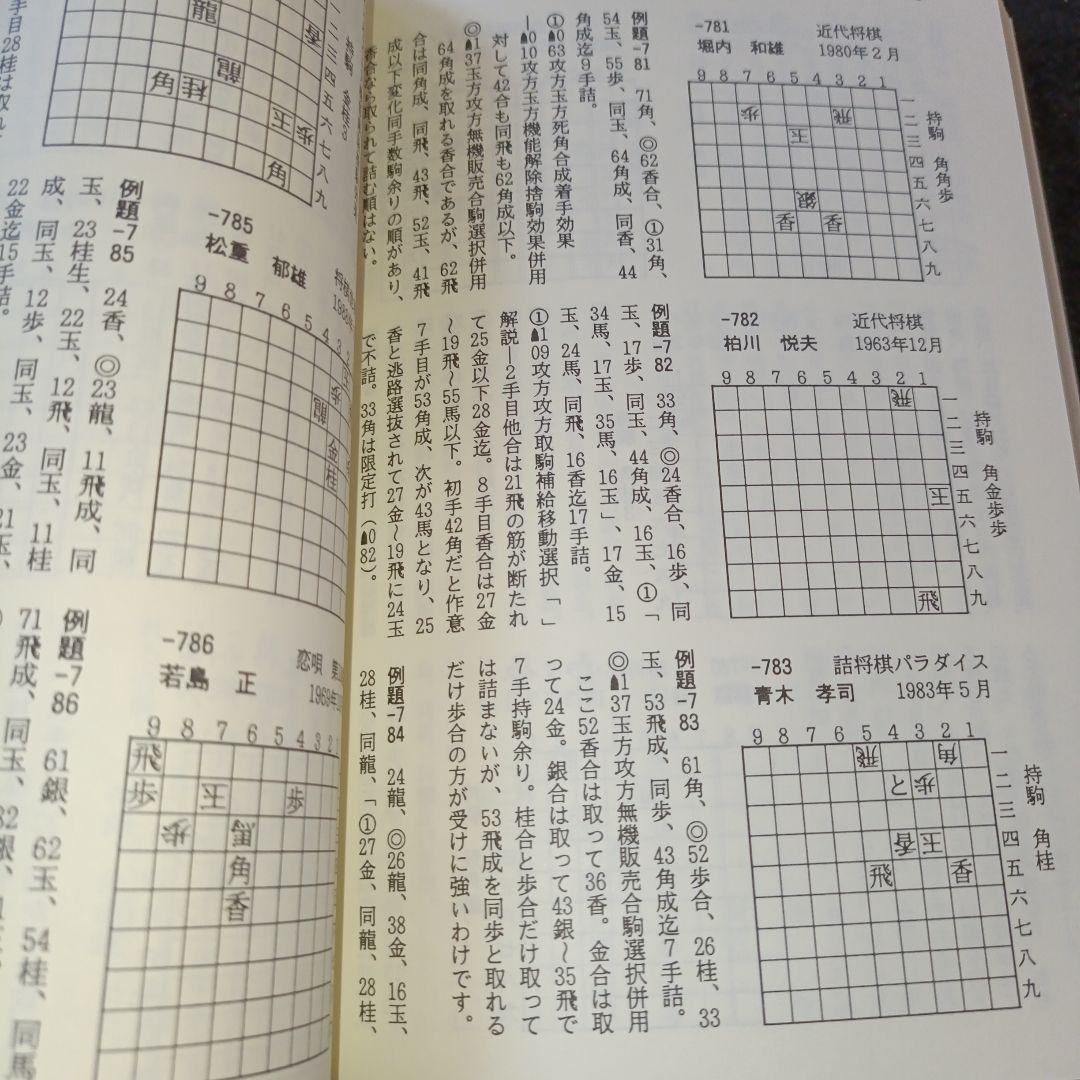 -781 近代将棋
堀内 和雄 1980年2月
9 8 7 6 5 4 3 2 1
一二三四五六七八九
持駒 角角歩
歩 飛
玉
銀
香 香
例題-781 71角、◎62香合、①31角、
54玉、55歩、同玉、64角成、同香、44
角成迄9手詰。
①♠063攻方玉方死角合成着手効果
―♠010攻方玉方機能解除捨駒効果併用
対して42合も同飛も62角成以下。
◎♠137玉方攻方無機販売合駒選択併用
64角成を取れる香合であるが、62飛
合は同角成、同飛、43飛、52玉、41飛
成以下変化同手数駒余りの順があり、
香合なら取られて詰む順はない。
-782 近代将棋
柏川 悦夫 1963年12月
9 8 7 6 5 4 3 2 1
一二三四五六七八九
持駒 角金歩歩
飛
玉
飛
例題-782 33角、◎24香合、16歩、同
玉、17歩、同玉、44角成、16玉、①「
34馬、17玉、35馬、16玉」、17金、15
玉、24馬、同飛、16香迄17手詰。
①♠109攻方攻方取駒補給移動選択「」
解説―2手目他合は21飛の筋が断たれ
て25金以下28金迄。8手目香合は27金
～19飛～55馬以下。初手42角だと作意
7手目が53角成、次が43馬となり、25
香と逃路選抜されて27金～19飛に24玉
で不詰。33角は限定打(♠082)。
-783 詰将棋パラダイス
青木 孝司 1983年5月
9 8 7 6 5 4 3 2 1
一二三四五六七八九
持駒 角桂
飛 角
と 歩
香 玉
飛 香
例題-783 61角、◎52歩合、26桂、33
玉、53飛成、同歩、43角成迄7手詰。
◎♠137玉方攻方無機販売合駒選択併用
ここ52香合は取って36香。金合は取
って24金。銀合は取って43銀～35飛で
7手持駒余り。桂合と歩合だけ取って
は詰まないが、53飛成を同歩と取れる
だけ歩合の方が受けに強いわけです。
例題-784 24龍、◎26龍、38金、16玉、
28桂、同龍、「①27金、同龍、28桂、
龍
香
龍
角 桂
玉 歩
角
一二三四五六七八九
持駒
-785
松重 郁雄
9 8 7 6 5 4 3
歩
龍
金
桂
例題-785 24香、◎23龍、11飛成、同
玉、23桂生、22玉、12飛、同玉、11桂
成、同玉、12歩、同玉、23金、21玉、
22金迄15手詰。
-786 恋唄
若島 正
9 8 7 6 5 4 3 2 1
飛
歩 玉 歩
歩
角
香
例題-786 61銀、62玉、54桂、同馬
71飛成、同玉、